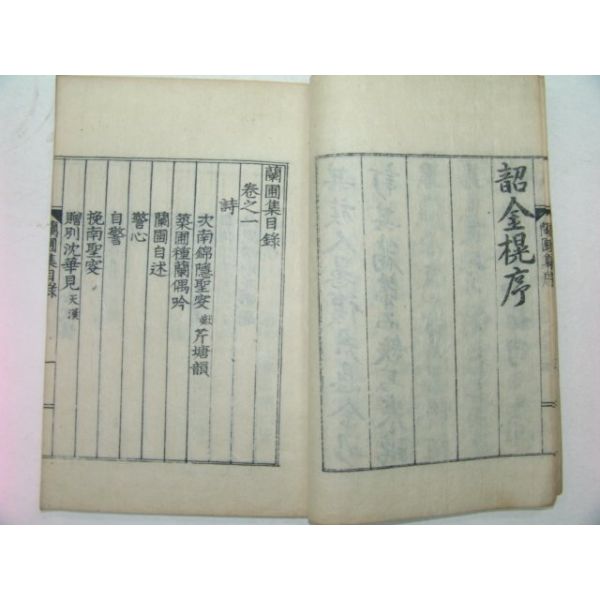 韶金榥序
蘭圃集序
蘭圃集目錄
卷之一
詩
次南錦隱聖宎 芹塘韻
築圃種蘭偶吟
蘭圃自述
警心
自警
挽南聖宎
贈別沈華見天漢
蘭圃集目錄